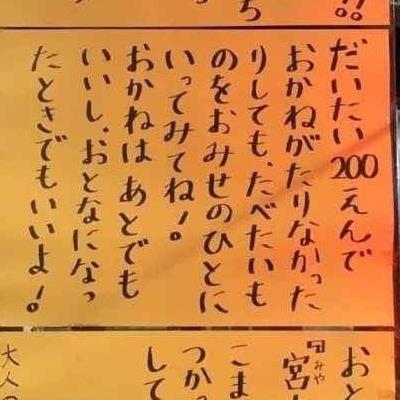 ‼
ち
だいたい200えんで
おかねがたりなかった
りしても、たべたいも
のをおみせのひとに
いってみてね!。
おかねは あとでも
いいし、おとなになっ
たときでもいいよ!。
おと
宮
みや
こま
つかっ
して
大人の